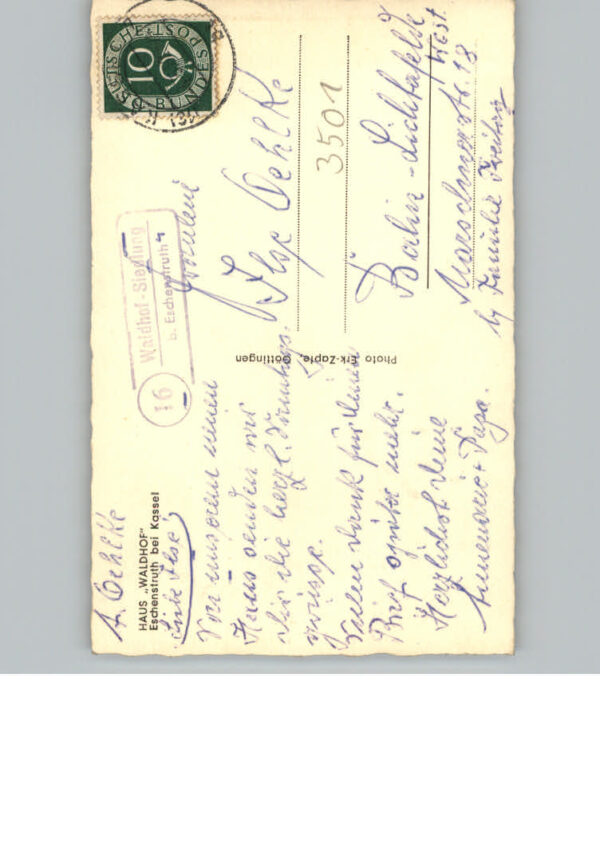 A. Oehlke
HAUS „WALDHOF”
Eschenstruth bei Kassel
Liebe Ilse,
Von unserem neuen
Haus senden wir
Dir die herzl. Sonntags-
grüsse.
Vielen Dank für Deinen
Brief später mehr.
Herzlichst Deine
Papa.
Photo Erk-Zapfe, Göttingen
16
Waldhof-Siedlung
b. Eschenstruth
DEUTSCHE BUNDESPOST
10
Fräulein
Ilse Oehlke
3501
Berlin-Lichterfelde
West.
13
b/ Familie Freitag